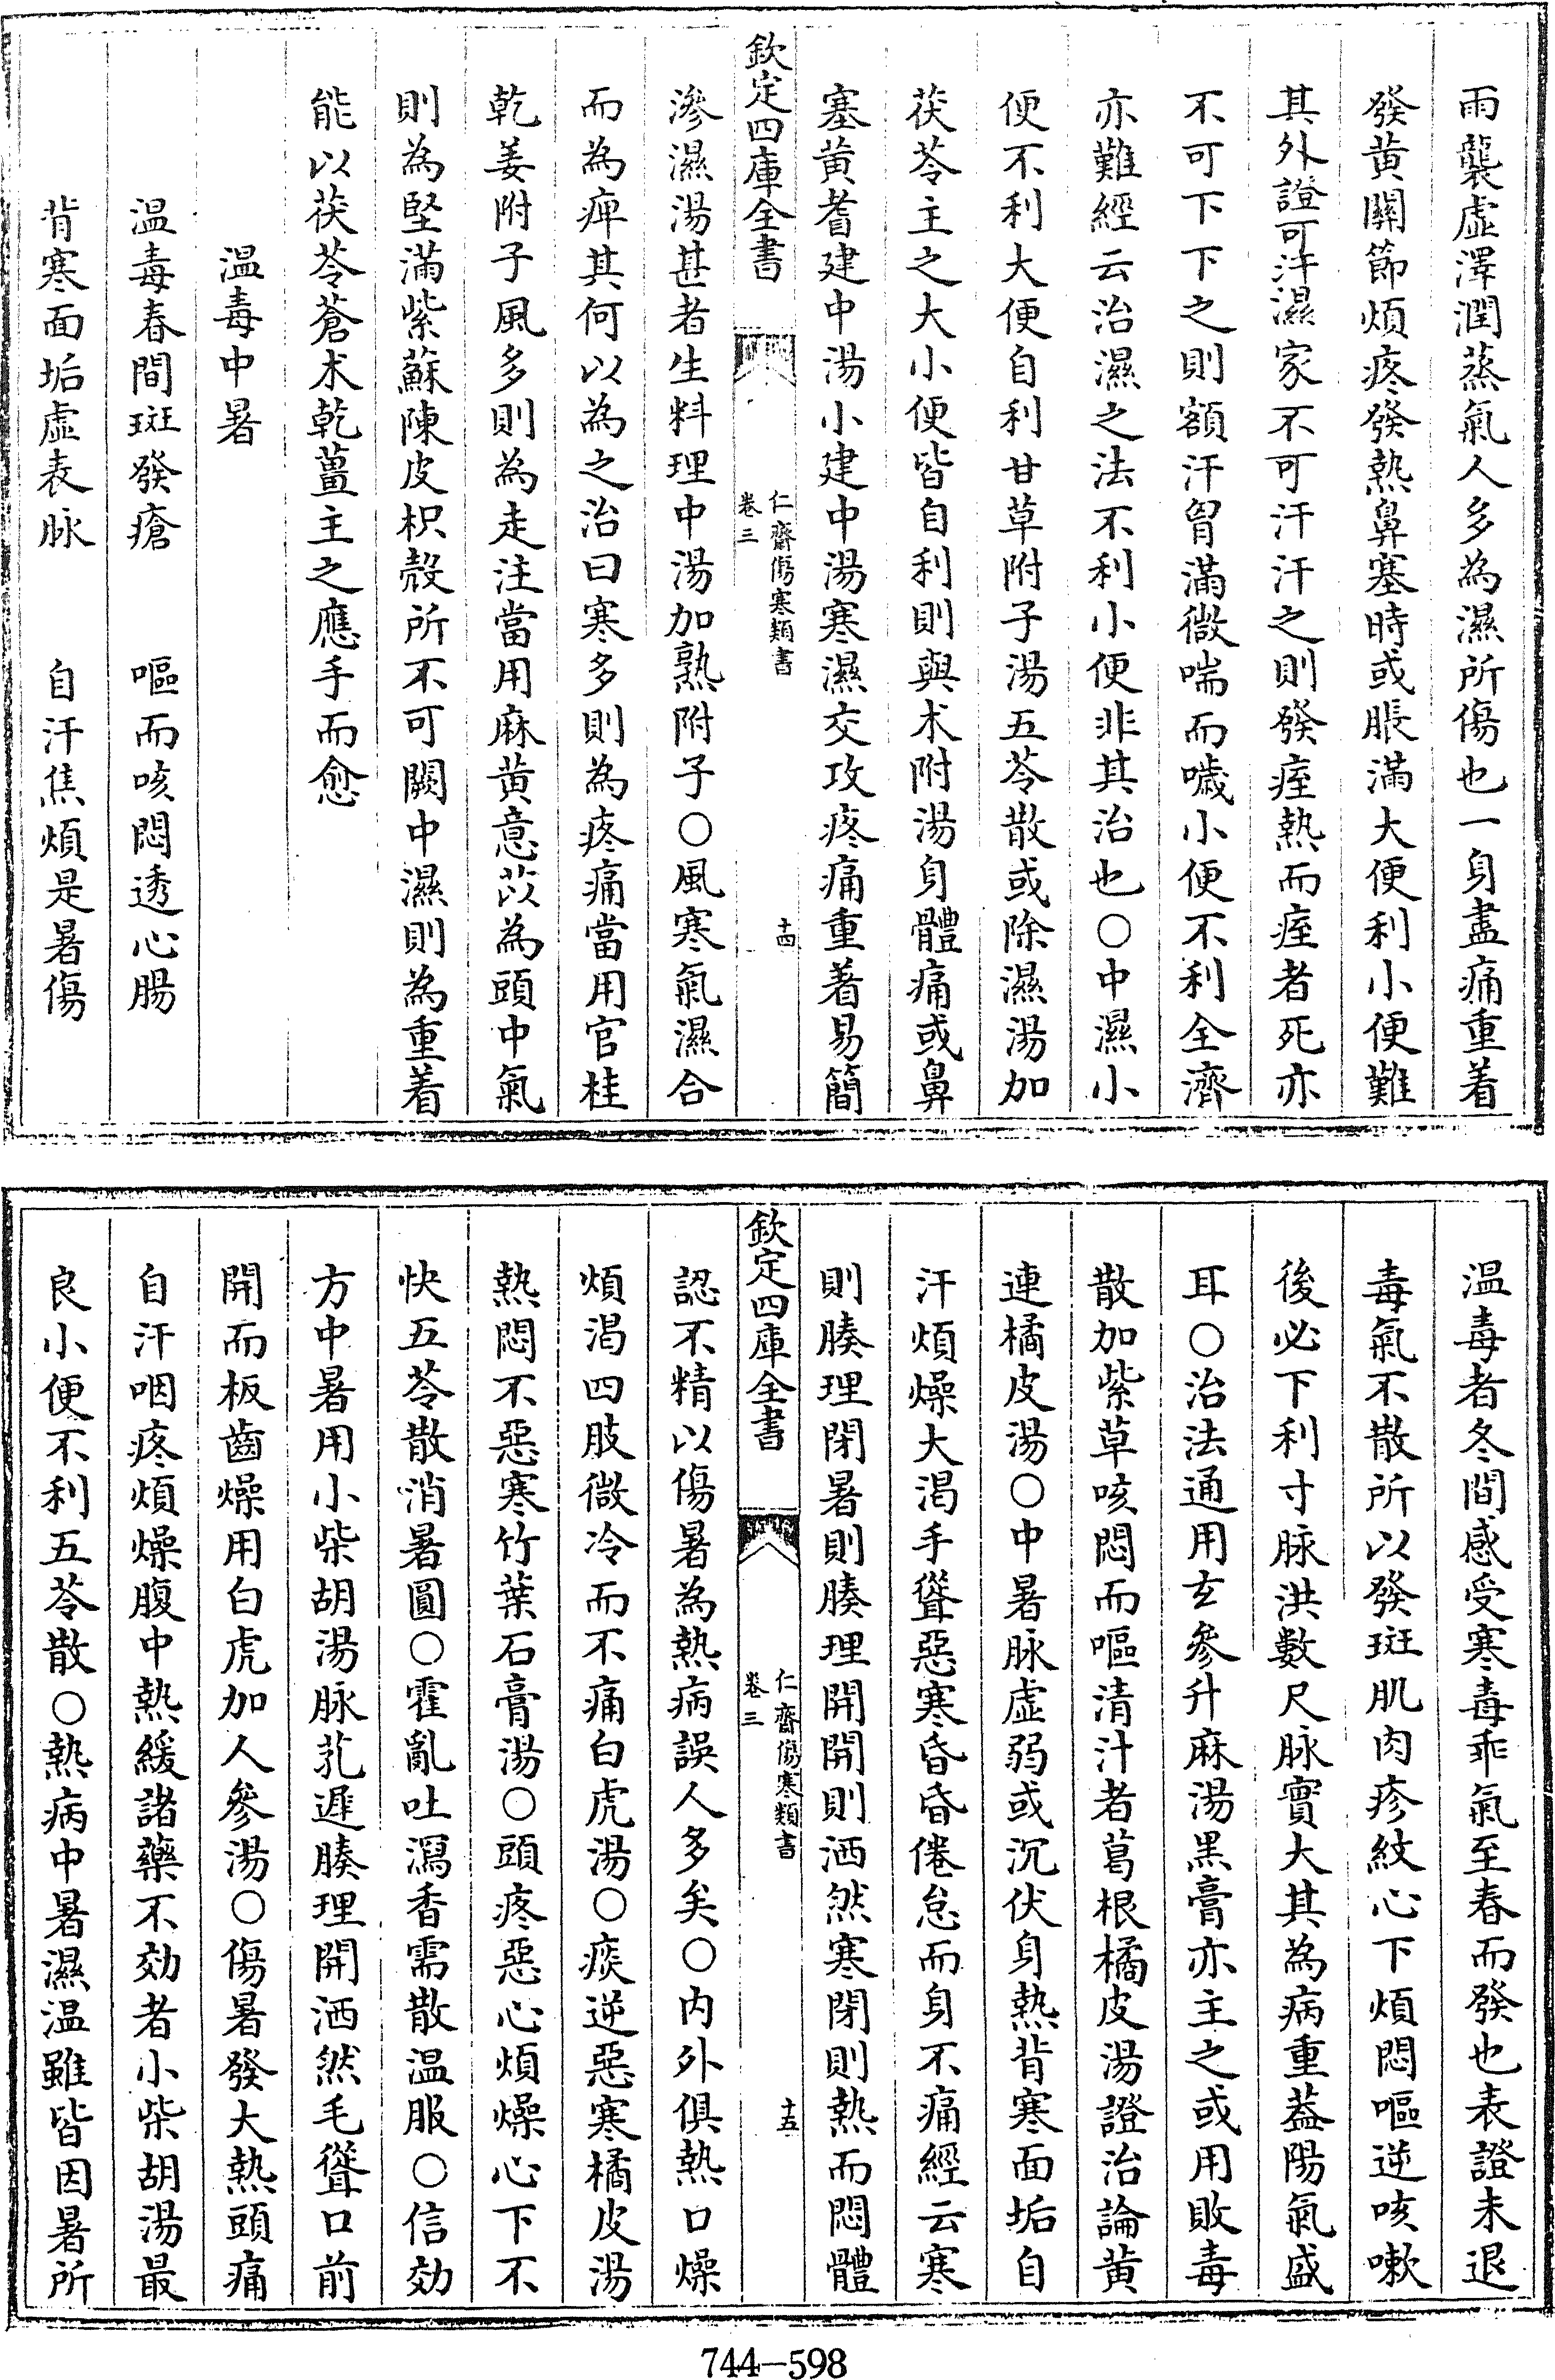 雨襲虛澤潤蒸氣人多為濕所傷也一身盡痛重着
發黃關節煩疼發熱鼻塞時或脹滿大便利小便難
其外證可汗濕家不可汗汗之則發痓熱而痓者死亦
不可下下之則額汗胷滿微喘而噦小便不利全濟
亦難經云治濕之法不利小便非其治也○中濕小
便不利大便自利甘草附子湯五苓散或除濕湯加
茯苓主之大小便皆自利則與术附湯身體痛或鼻
塞黃耆建中湯小建中湯寒濕交攻疼痛重著易簡
欽定四庫全書
仁齋傷寒類書
卷三
十四
滲濕湯甚者生料理中湯加熟附子○風寒氣濕合
而為痺其何以為之治曰寒多則為疼痛當用官桂
乾姜附子風多則為走注當用麻黃意苡為頭中氣
則為堅滿紫蘇陳皮枳殼所不可闕中濕則為重着
能以茯苓蒼术乾薑主之應手而愈
溫毒中暑
溫毒春間斑發瘡 嘔而咳悶透心腸
背寒面垢虛表脉 自汗焦煩是暑傷
溫毒者冬間感受寒毒乖氣至春而發也表證未退
毒氣不散所以發斑肌肉疹紋心下煩悶嘔逆咳嗽
後必下利寸脉洪數尺脉實大其為病重葢陽氣盛
耳○治法通用玄參升麻湯黑膏亦主之或用敗毒
散加紫草咳悶而嘔清汁者葛根橘皮湯證治論黃
連橘皮湯○中暑脉虛弱或沉伏身熱背寒面垢自
汗煩燥大渴手聳惡寒昏昏倦怠而身不痛經云寒
則腠理閉暑則腠理開開則洒然寒閉則熱而悶體
欽定四庫全書
仁齋傷寒類書
卷三
十五
認不精以傷暑為熱病誤人多矣○内外俱熱口燥
煩渴四肢微冷而不痛白虎湯○痰逆惡寒橘皮湯
熱悶不惡寒竹葉石膏湯○頭疼惡心煩燥心下不
快五苓散消暑圓○霍亂吐瀉香需散溫服○信効
方中暑用小柴胡湯脉芤遲腠理開洒然毛聳口前
開而板齒燥用白虎加人參湯○傷暑發大熱頭痛
自汗咽疼煩燥腹中熱緩諸藥不効者小柴胡湯最
良小便不利五苓散○熱病中暑濕溫雖皆因暑所
744-598